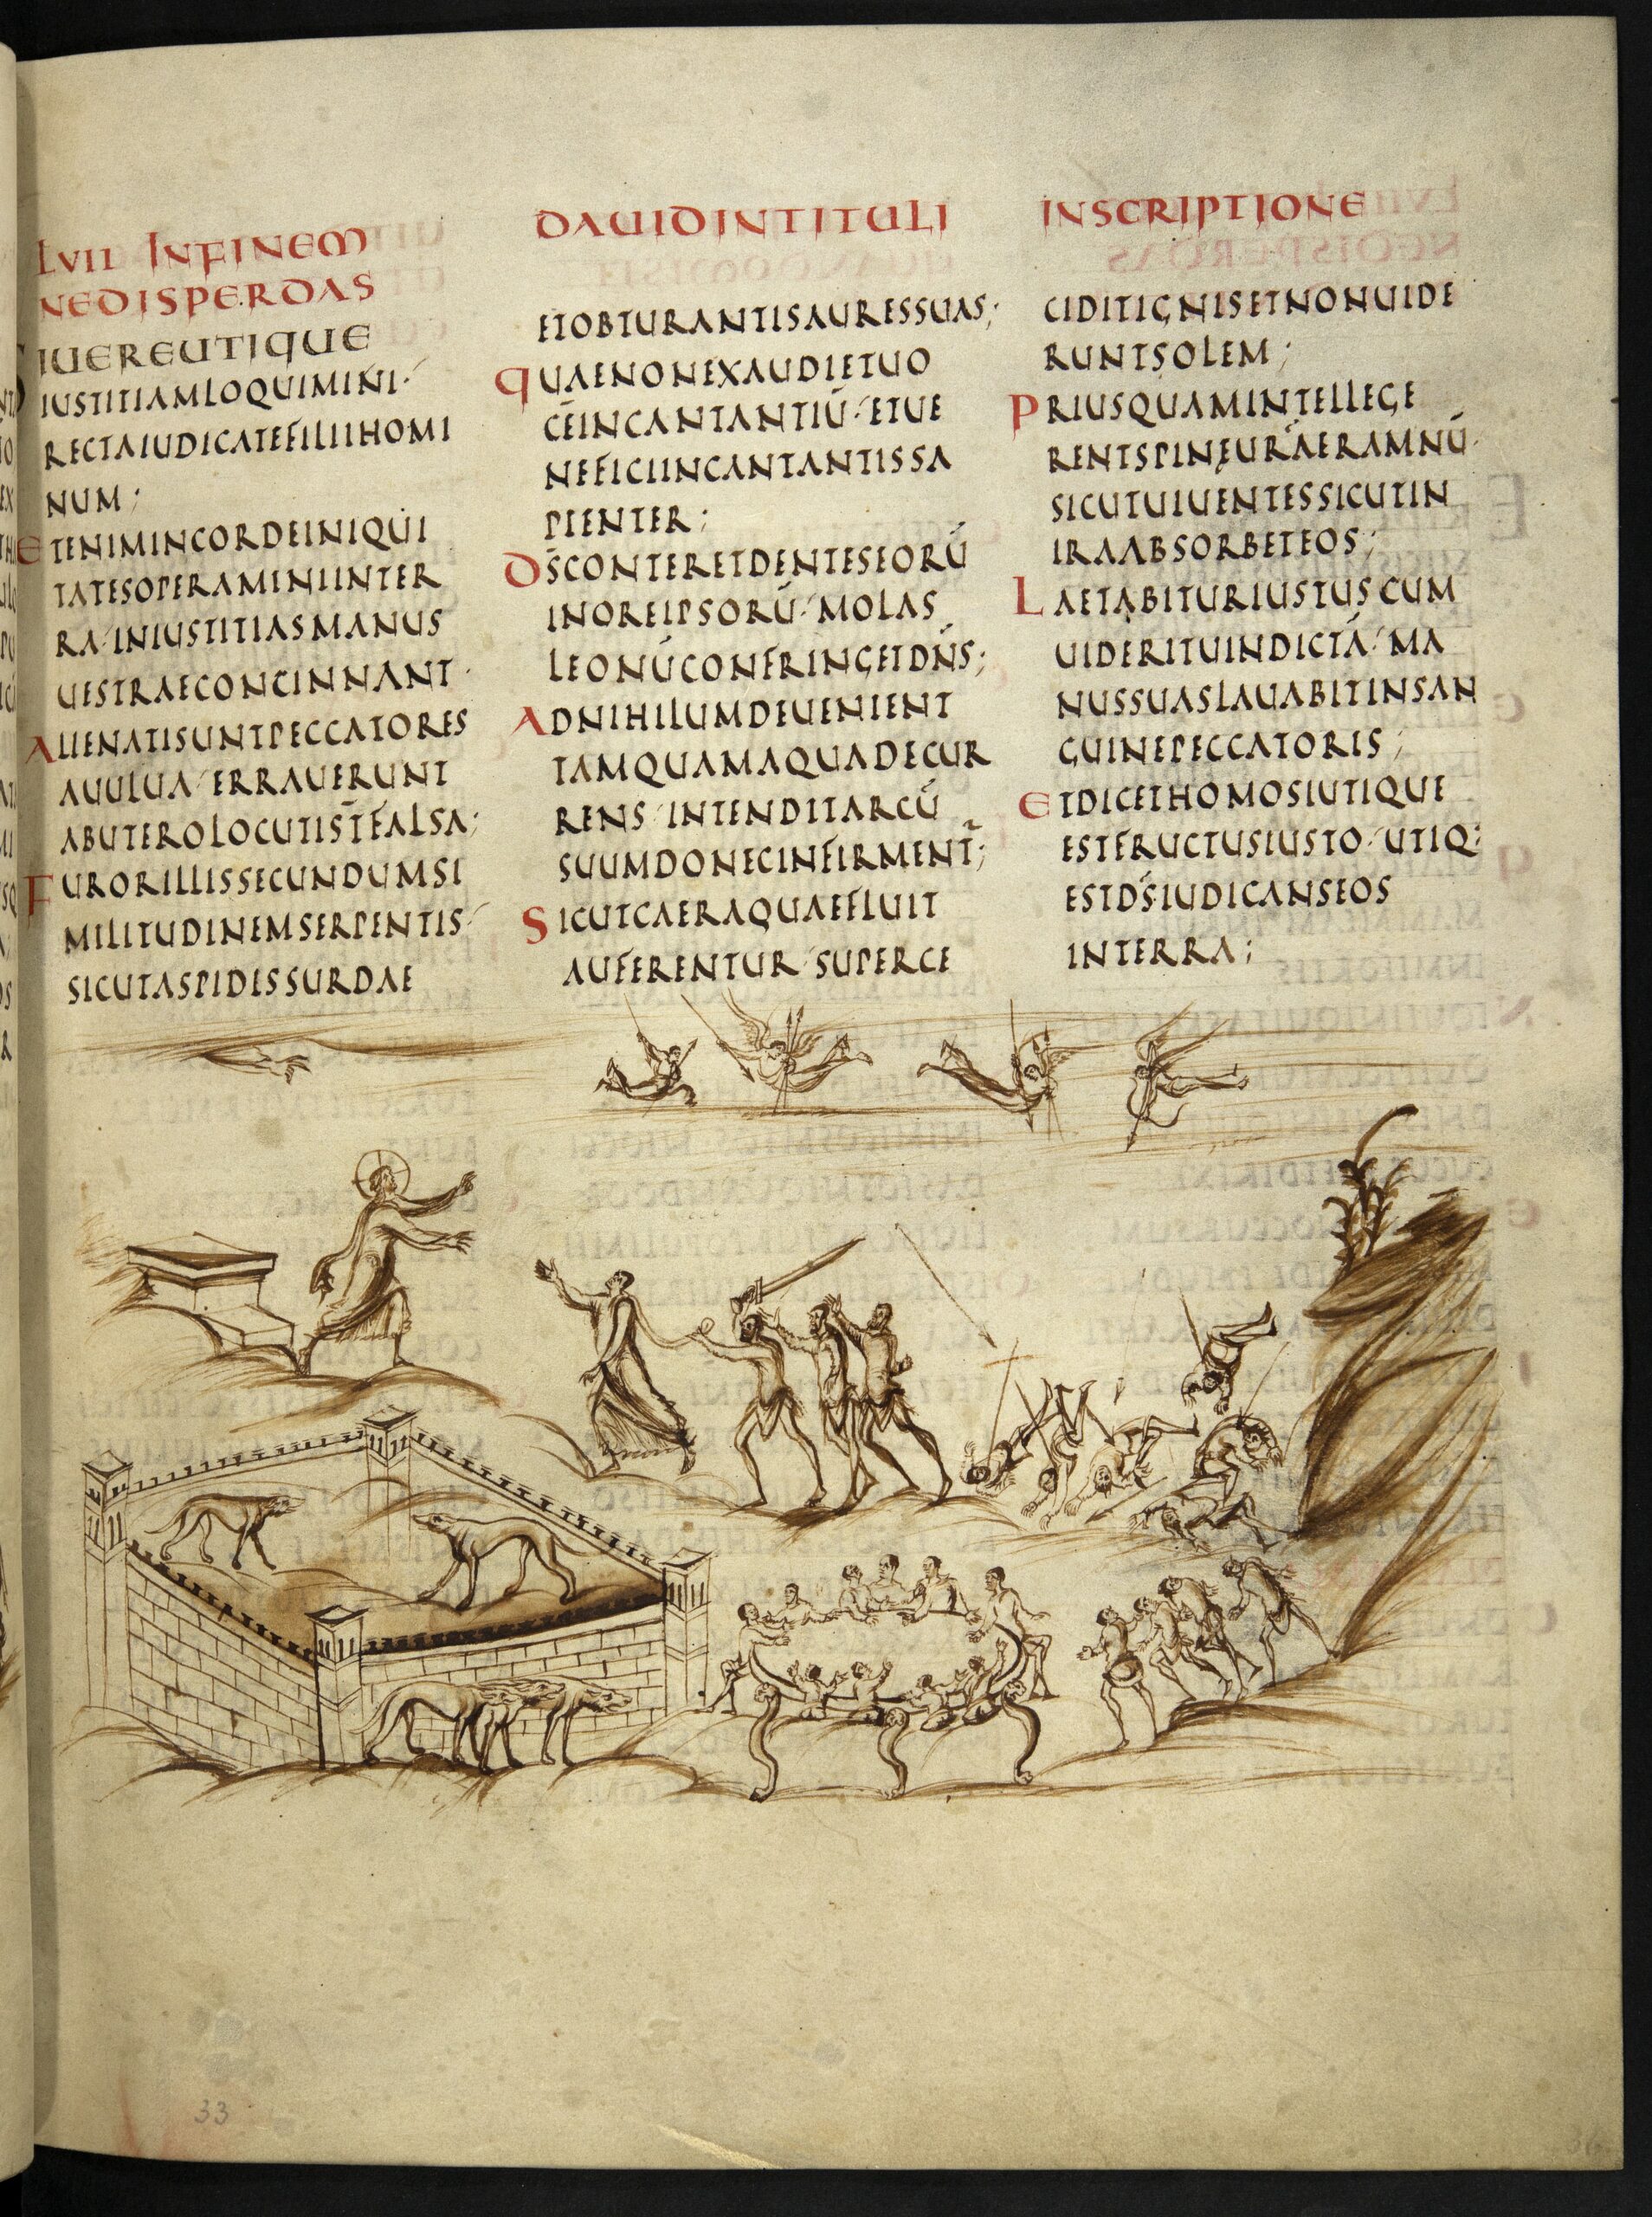 LVII INFINEM
NEDISPERDAS
SIUEREUTIQUE
IUSTITIAMLOQUIMINI·
RECTAIUDICATEFILIIHOMI
NUM;
ETENIMINCORDEINIQUI
TATESOPERAMINIINTER
RA·INIUSTITIASMANUS
UESTRAECONCINNANT·
ALIENATISUNTPECCATORES
AUULUA·ERRAUERUNT
ABUTEROLOCUTIST̄FALSA;
FURORILLISSECUNDUMSI
MILITUDINEMSERPENTIS·
SICUTASPIDISSURDAE
DAUIDINTITULI
ETOBTURANTISAURESSUAS;
QUAENONEXAUDIETUO
CĒINCANTANTIŪ·ETUE
NEFICIINCANTANTISSA
PIENTER;
DS̄CONTERETDENTESEORŪ
INOREIPSORŪ·MOLAS
LEONŪCONFRINGETDN̄S;
ADNIHILUMDEUENIENT
TAMQUAMAQUADECUR
RENS·INTENDITARCŪ
SUUMDONECINFIRMENT̄;
SICUTCAERAQUAEFLUIT
AUFERENTUR·SUPERCE
INSCRIPTIONE
CIDITIGNISETNONUIDE
RUNTSOLEM;
PRIUSQUAMINTELLEGE
RENTSPINĘURAERAMNŪ·
SICUTUIUENTESSICUTIN
IRAABSORBETEOS;
LAETABITURIUSTUSCUM
UIDERITUINDICTĀ·MA
NUSSUASLAUABITINSAN
GUINEPECCATORIS;
ETDICETHOMOSIUTIQUE
ESTFRUCTUSIUSTO·UTIQ;
ESTDS̄IUDICANSEOS
INTERRA;
33